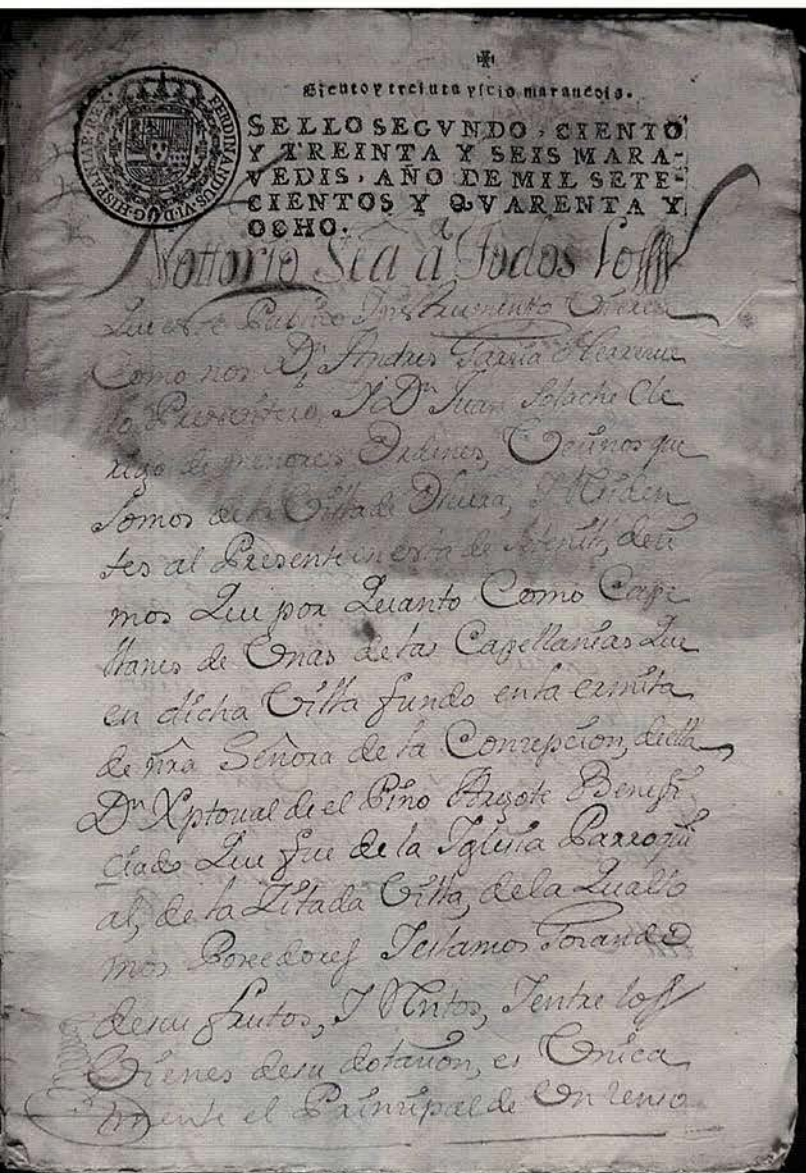 Ciento y treinta y seis maravedis.
FERDINANDUS·VI·D·G·HISPANIAR·REX·
SELLO SEGVNDO, CIENTO
Y TREINTA Y SEIS MARA-
VEDIS, AÑO DE MIL SETE-
CIENTOS Y QVARENTA Y
OCHO.
Nottorio Sea â Todos los
Que este Publico Instrumento Vieren
Como nos Dn Andres Garcia
Presvitero, Y Dn Juan Solache Cle
rigo de menores Ordenes, Vecinos que
Somos de la Villa de Olvera, Y Residen
tes al Presente en esta de Setenil, deci
mos Que por Quanto Como Cape
llanes de Unas de las Capellanias Que
en dicha Villa fundo en la ermita
de nra Señora de la Concepcion, de ella
Dn Xptoval de el Pino Argote Benefi
ciado Que fue de la Iglesia Parroqui
al, de la Zitada Villa, de la Qual so
mos Poseedores Y estamos Gozando
de su frutos, Y Rentas, Y entre los
Vienes de su dotacion, es Unica
mente el Principal de Un Zenso